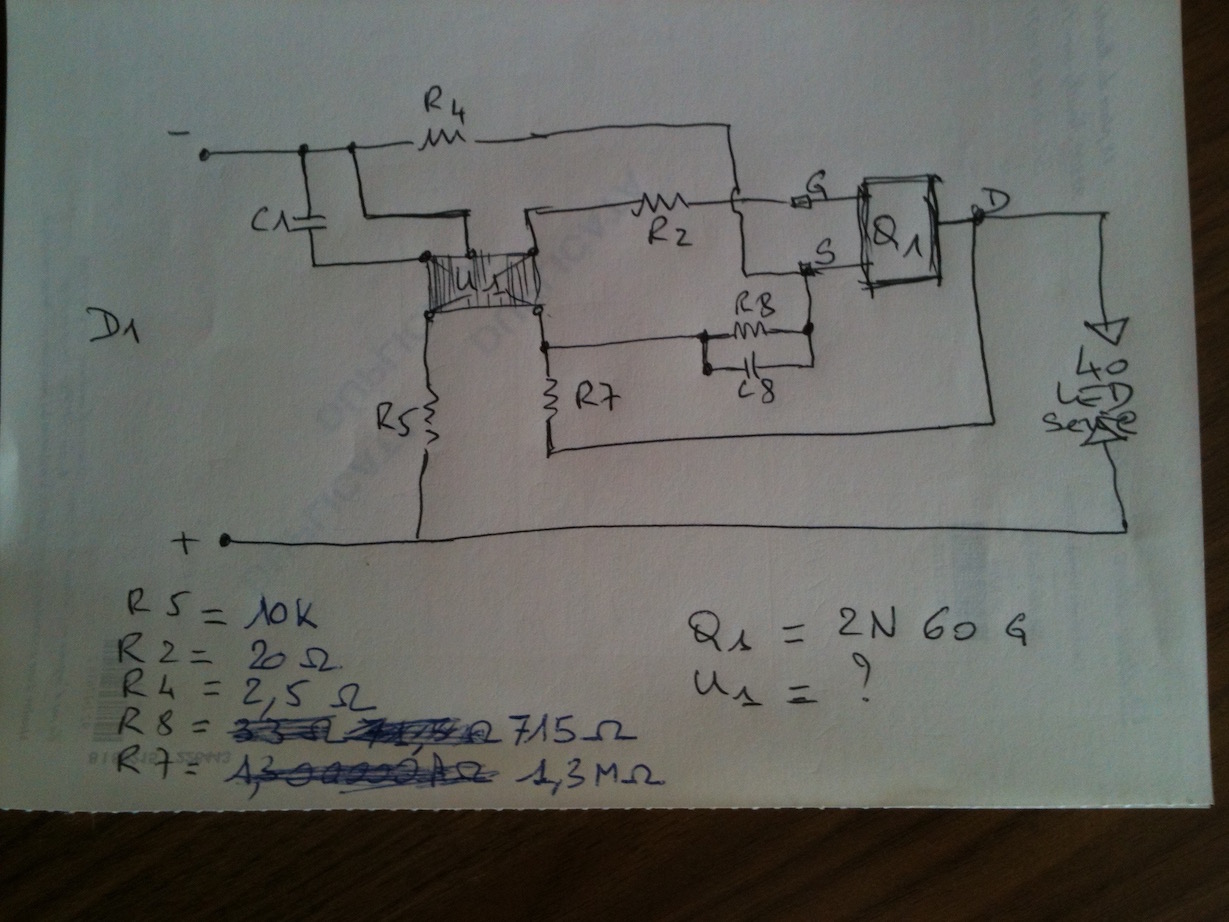 R4
-
G
D
C1
R2
Q1
S
U1
R8
D1
C8
R7
40
LED
Serie
R5
+
R5 = 10K
R2 = 20 Ω
R4 = 2,5 Ω
R8 = 715 Ω
R7 = 1,3 MΩ
Q1 = 2N 60 G
U1 = ?
DUPLICATA